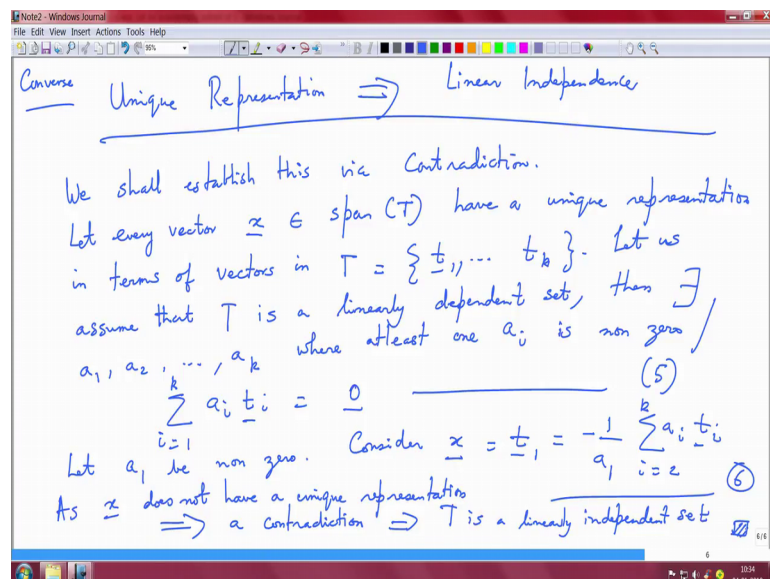 Note2 - Windows Journal
File Edit View Insert Actions Tools Help
95%
Converse Unique Representation ⇒ Linear Independence
We shall establish this via Contradiction.
Let every vector x ∈ span (T) have a unique representation
in terms of vectors in T = { t1, ... tk }. Let us
assume that T is a linearly dependent set, then ∃
a1, a2, ..., ak where atleast one ai is non zero /
∑_{i=1}^{k} ai ti = 0 ——— (5)
Let a1 be non zero. Consider x = t1 = -1/a1 ∑_{i=2}^{k} ai ti
(6)
As x does not have a unique representation
⇒ a contradiction ⇒ T is a linearly independent set
6/6
6
10:34